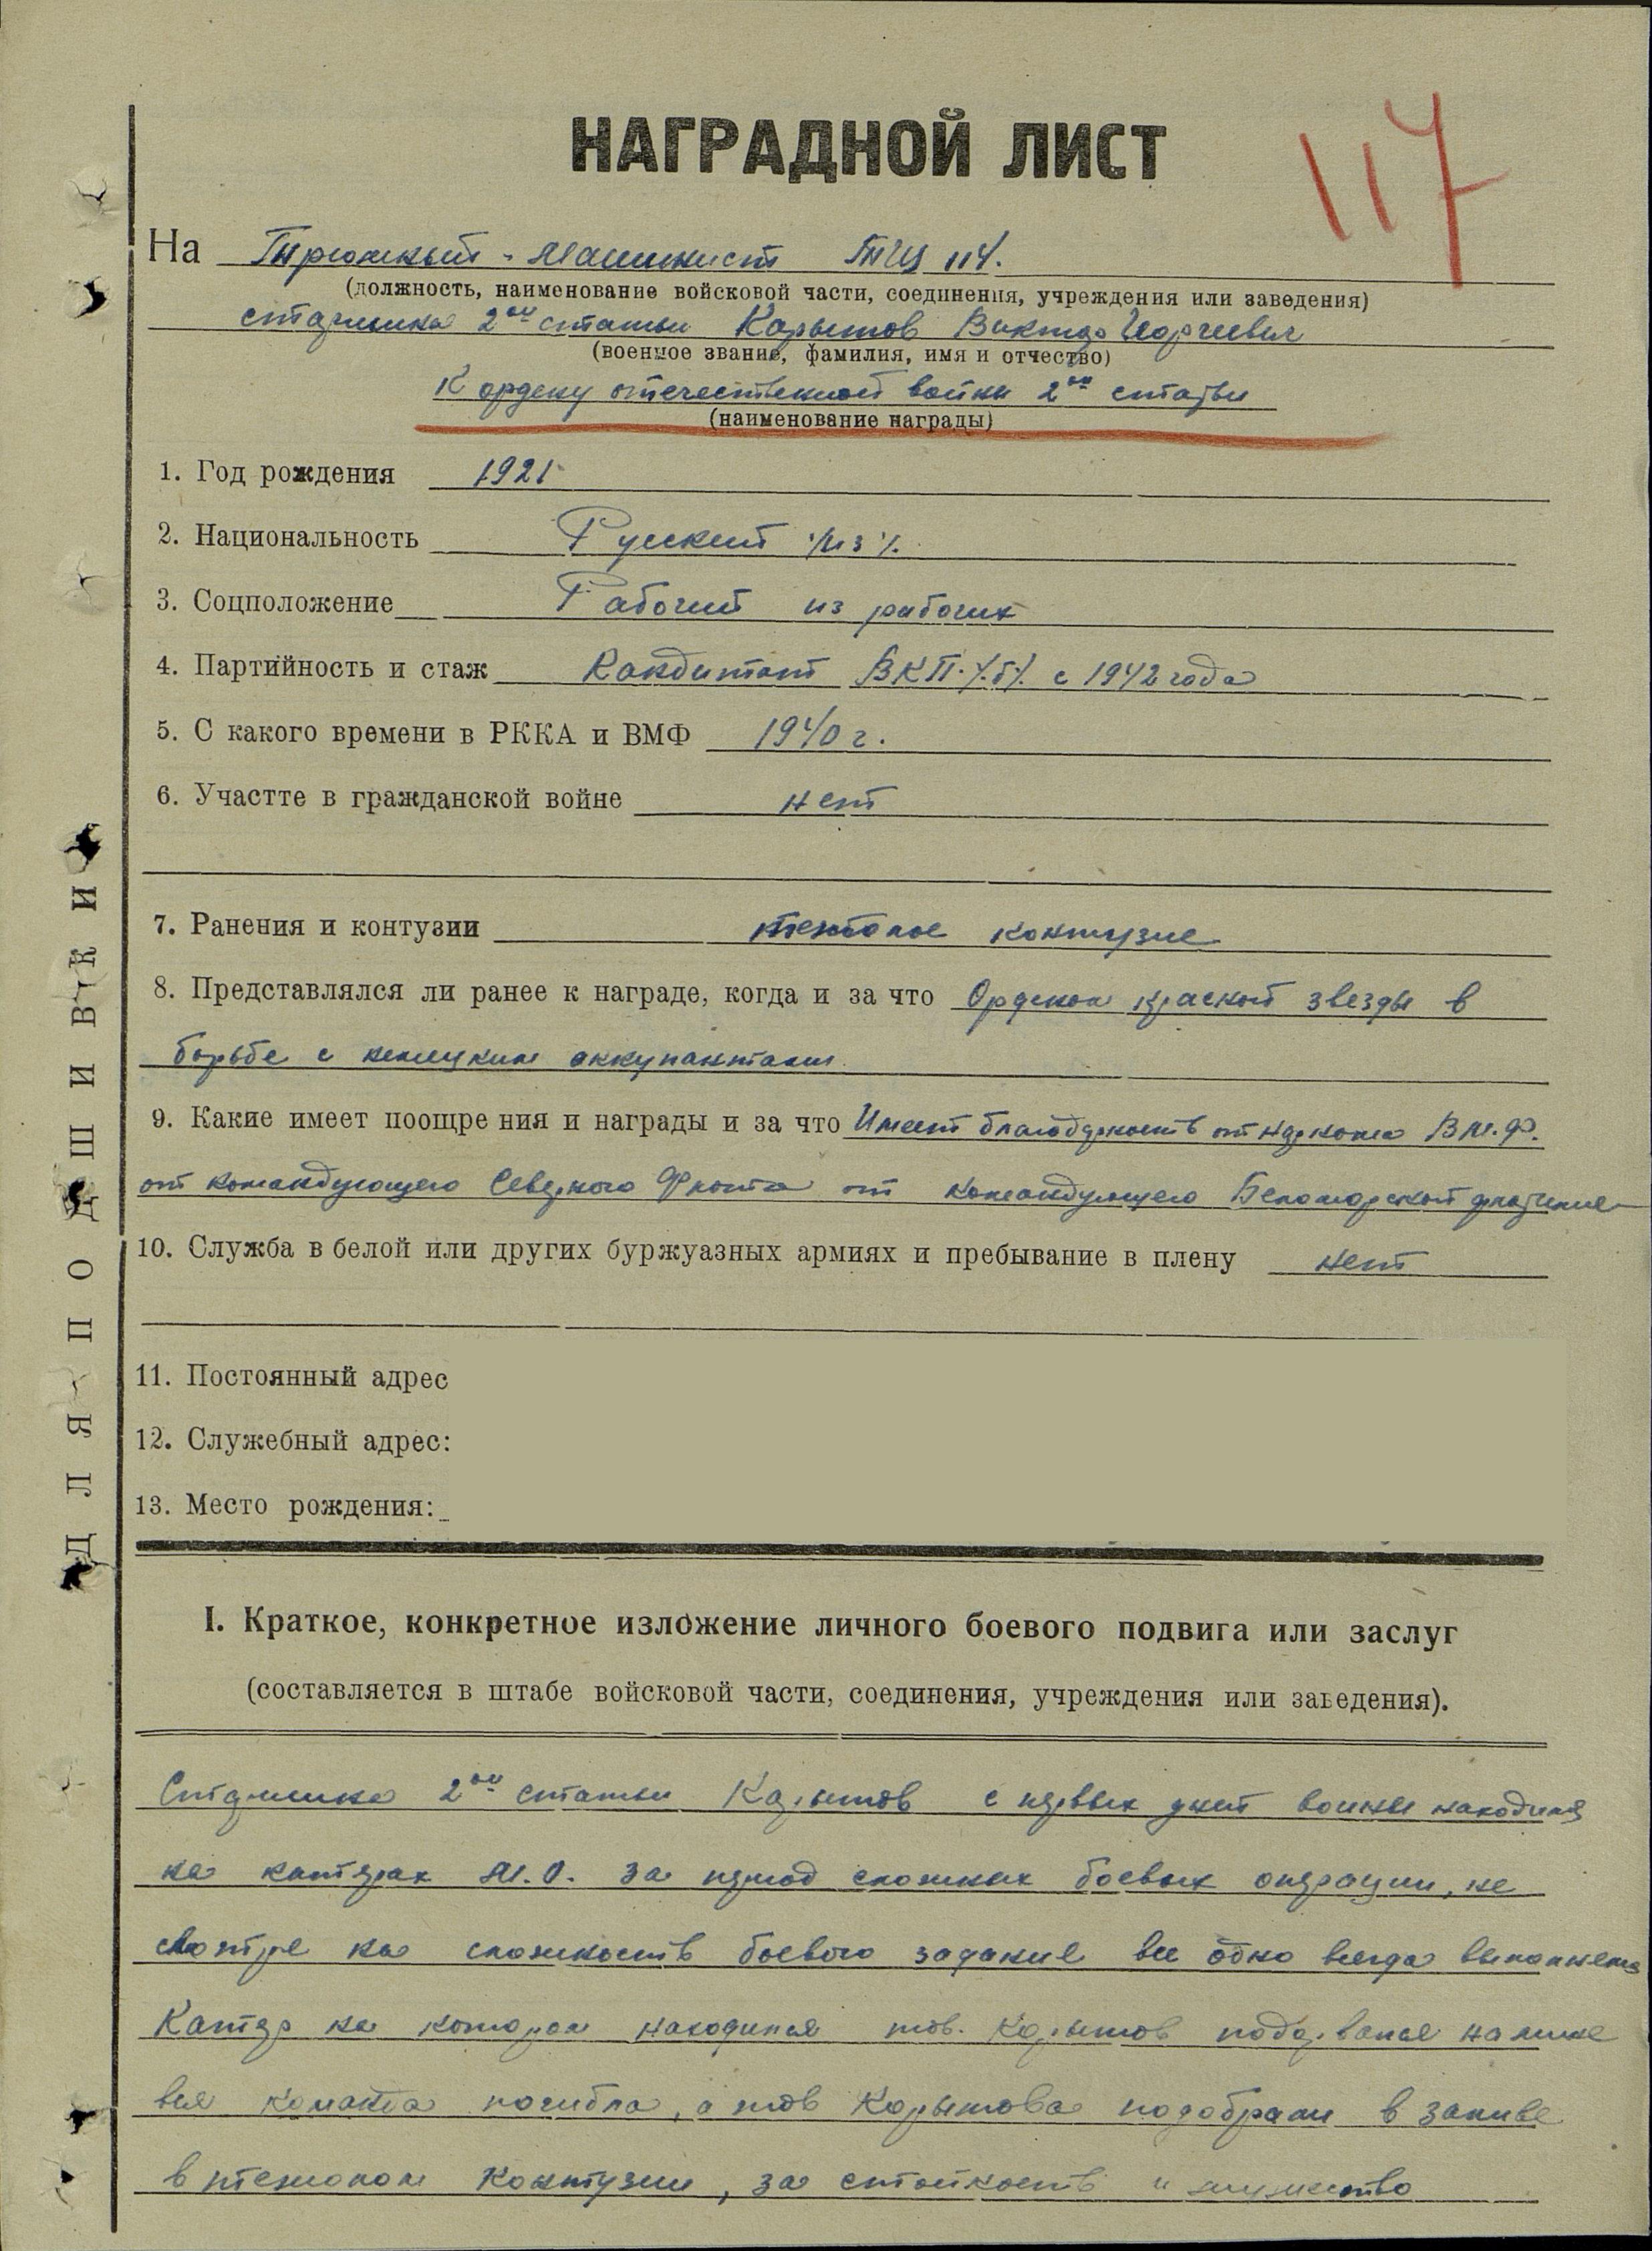 НАГРАДНОЙ ЛИСТ
117
На Трюмный - машинист ТЩ 114.
(должность, наименование войсковой части, соединения, учреждения или заведения)
старшина 2ой статьи Карымов Виктор
(военное звание, фамилия, имя и отчество)
К ордену отечественной войны 2ой статьи
(наименование награды)
1. Год рождения 1921
2. Национальность Руский
3. Соцположение Рабочий из рабочих
4. Партийность и стаж Кандитат ВКП /б/ с 1942 года
5. С какого времени в РККА и ВМФ 1940 г.
6. Участте в гражданской войне нет
7. Ранения и контузии тежолое контузие
8. Представлялся ли ранее к награде, когда и за что Орденом красной звезды в
борьбе с немецким аккупантами
9. Какие имеет поощре ния и награды и за что Имеет благодарность от наркома В.М.Ф.
от командующего Северного Флота от командующего Беломорской флотилие
10. Служба в белой или других буржуазных армиях и пребывание в плену нет
11. Постоянный адрес
12. Служебный адрес:
13. Место рождения:
ДЛЯ ПОДШИВКИ
I. Краткое, конкретное изложение личного боевого подвига или заслуг
(составляется в штабе войсковой части, соединения, учреждения или заведения).
Старшина 2ой статьи Карымов с первых дней воины находился
на катерах М.О. за период сложных боевых операции, не
смотре на сложность боевого задание все одно всегда выполнял
Катер на котором находился тов. Карымов подорвался на мине
вся команда погибла, а тов Карымова подобрали в заливе
в тежолом контузии, за стойкость и мужество